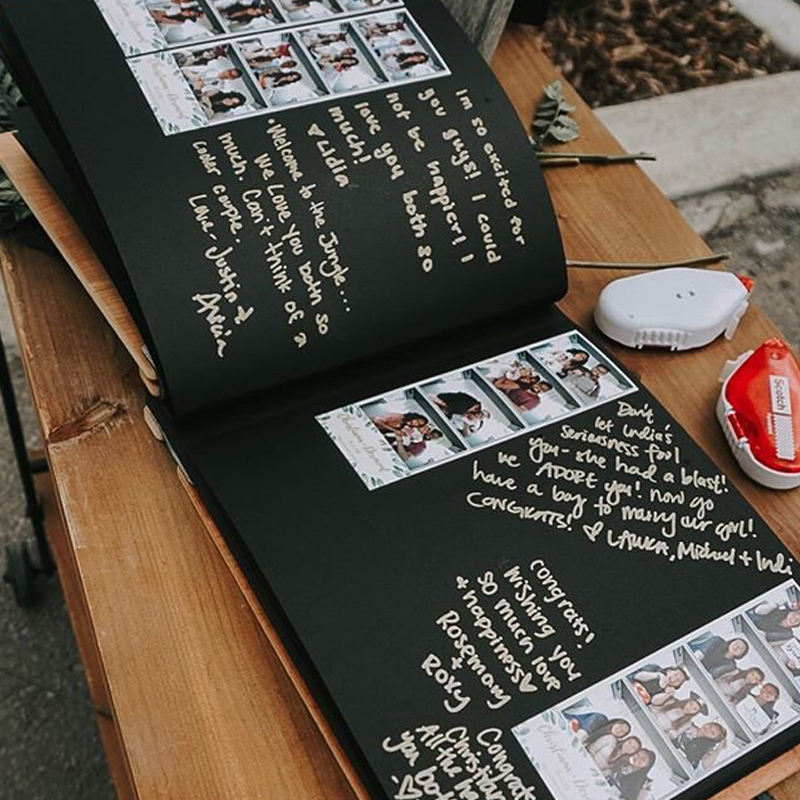 Im so excited for
you guys! I could
not be happier! I
love you both so
much!
♥ Lidia
"Welcome to the Jungle...
We Love You both so
much. Can't think of a
cooler couple.
Love, Justin &
Don't
let India's
seriousness fool
you- she had a blast!
we ADORE you! now go
have a boy to marry our girl!
CONGRATS! ♡ LAURA, Michael + Indi
congrats!
Wishing you
so much love
+ happiness♥
Rosemary
+
Roxy
Congrat
Christian
All the
you bot
Scotch